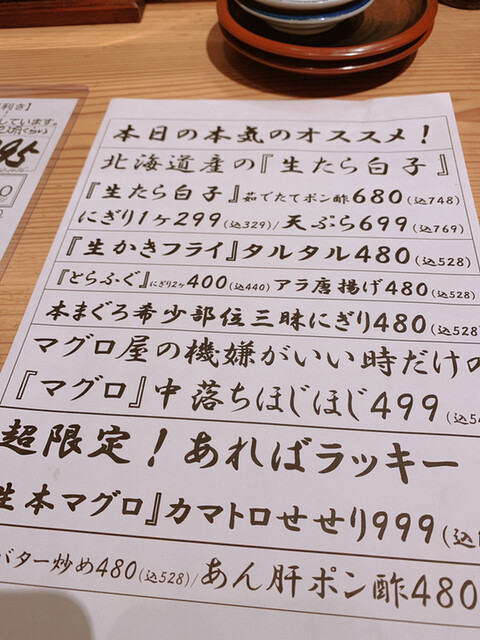 利き】
しています。
95
0
本日の本気のオススメ!
北海道産の『生たら白子』
『生たら白子』茹でたてポン酢680(込748)
にぎり1ヶ299(込329)/天ぷら699(込769)
『生かきフライ』タルタル480(込528)
『とらふぐ』にぎり2ヶ400(込440)アラ唐揚げ480(込528)
本まぐろ希少部位三昧にぎり480(込528)
マグロ屋の機嫌がいい時だけの
『マグロ』中落ちほじほじ499(込54
超限定!あればラッキー
生本マグロ』カマトロせせり999(込
バター炒め480(込528)/あん肝ポン酢480